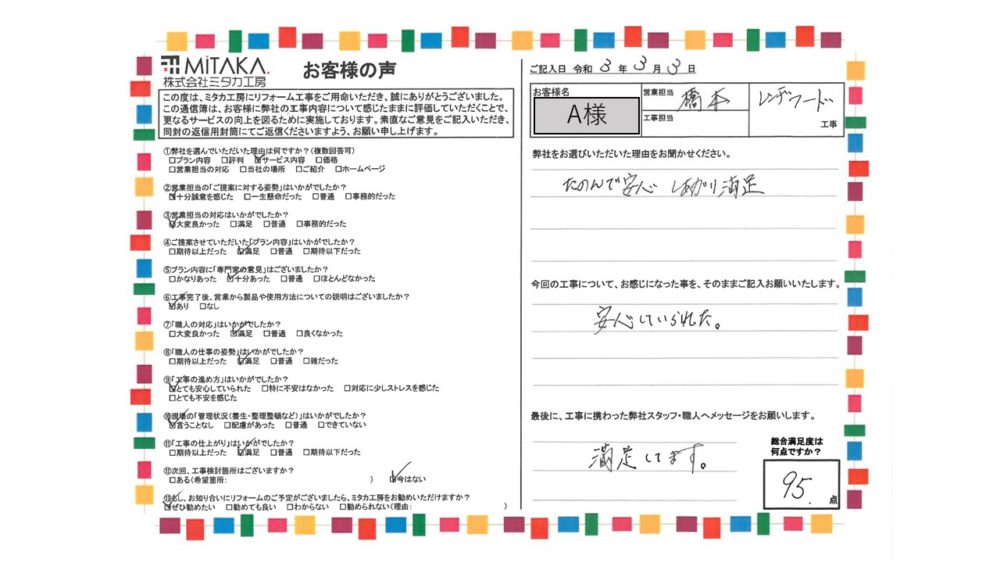 MiTAKA
株式会社ミタカ工房
お客様の声
この度は、ミタカ工房にリフォーム工事をご用命いただき、誠にありがとうございました。
この通信簿は、お客様に弊社の工事内容について感じたままに評価していただくことで、
更なるサービスの向上を図るために実施しております。素直なご意見をご記入いただき、
同封の返信用封筒にてご返信くださいますよう、お願い申し上げます。
①弊社を選んでいただいた理由は何ですか?(複数回答可)
□プラン内容 □評判 ☑サービス内容 □価格
□営業担当の対応 □当社の場所 □ご紹介 □ホームページ
②営業担当の「ご提案に対する姿勢」はいかがでしたか?
☑十分誠意を感じた □一生懸命だった □普通 □事務的だった
③営業担当の対応はいかがでしたか?
☑大変良かった □満足 □普通 □事務的だった
④ご提案させていただいた「プラン内容」はいかがでしたか?
□期待以上だった ☑満足 □普通 □期待以下だった
⑤プラン内容に「専門家の意見」はございましたか?
□かなりあった ☑十分あった □普通 □ほとんどなかった
⑥工事完了後、営業から製品や使用方法についての説明はございましたか?
☑あり □なし
⑦「職人の対応」はいかがでしたか?
□大変良かった ☑満足 □普通 □良くなかった
⑧「職人の仕事の姿勢」はいかがでしたか?
□期待以上だった ☑満足 □普通 □雑だった
⑨「工事の進め方」はいかがでしたか?
☑とても安心していられた □特に不安はなかった □対応に少しストレスを感じた
□とても不安を感じた
⑩現場の「管理状況(養生・整理整頓など)」はいかがでしたか?
☑言うことなし □配慮があった □普通 □できていない
⑪「工事の仕上がり」はいかがでしたか?
□期待以上だった ☑満足 □普通 □期待以下だった
⑫次回、工事検討箇所はございますか?
□ある(希望箇所: ) ☑今はない
⑬もし、お知り合いにリフォームのご予定がございましたら、ミタカ工房をお勧めいただけますか?
☑ぜひ勧めたい □勧めても良い □わからない □勧められない(理由: )
ご記入日 令和 3 年 3 月 3 日
お客様名
A様
営業担当 橋本
工事担当
レンジフード
工事
弊社をお選びいただいた理由をお聞かせください。
たのんで安心 しあがり満足
今回の工事について、お感じになった事を、そのままご記入お願いいたします。
安心していられた。
最後に、工事に携わった弊社スタッフ・職人へメッセージをお願いします。
満足してます。
総合満足度は
何点ですか?
95. 点